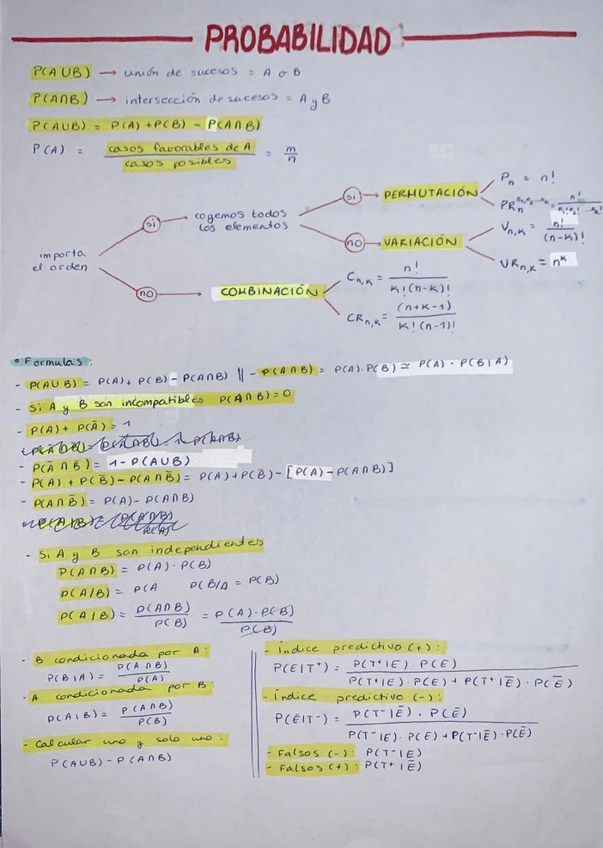 PROBABILIDAD
P(A∪B) → unión de sucesos = A o B
P(A∩B) → intersección de sucesos = A y B
P(A∪B) = P(A) + P(B) - P(A∩B)
P(A) = casos favorables de A / casos posibles = m/n
importa el orden
si → cogemos todos los elementos
si → PERMUTACIÓN
Pn = n!
no → VARIACIÓN
Vn,k = n!/(n-k)!
VRn,k = n^k
no → COMBINACIÓN
Cn,k = n!/k!(n-k)!
CRn,k = (n+k-1)/k!(n-1)!
• Formulas:
- P(A∪B) = P(A) + P(B) - P(A∩B) || - P(A∩B) = P(A)·P(B) ≃ P(A)·P(B|A)
- Si A y B son incompatibles P(A∩B) = 0
- P(A) + P(Ā) = 1
- P(Ā∩B̄) = 1 - P(A∪B)
- P(A) + P(B̄) - P(A∩B̄) = P(A) + P(B̄) - [P(A) - P(A∩B)]
- P(A∩B̄) = P(A) - P(A∩B)
- Si A y B son independientes
P(A∩B) = P(A)·P(B)
P(A/B) = P(A P(B/A = P(B)
P(A|B) = P(A∩B)/P(B) = P(A)·P(B)/P(B)
- B condicionada por A:
P(B|A) = P(A∩B)/P(A)
- A condicionada por B:
P(A|B) = P(A∩B)/P(B)
- Calcular uno y solo uno:
P(A∪B) - P(A∩B)
- Índice predictivo (+):
P(E|T⁺) = P(T⁺|E)·P(E) / P(T⁺|E)·P(E) + P(T⁺|Ē)·P(Ē)
- Índice predictivo (-):
P(E|T⁻) = P(T⁻|Ē)·P(Ē) / P(T⁻|E)·P(E) + P(T⁻|Ē)·P(Ē)
- Falsos (-): P(T⁻|E)
- Falsos (+): P(T⁺|Ē)